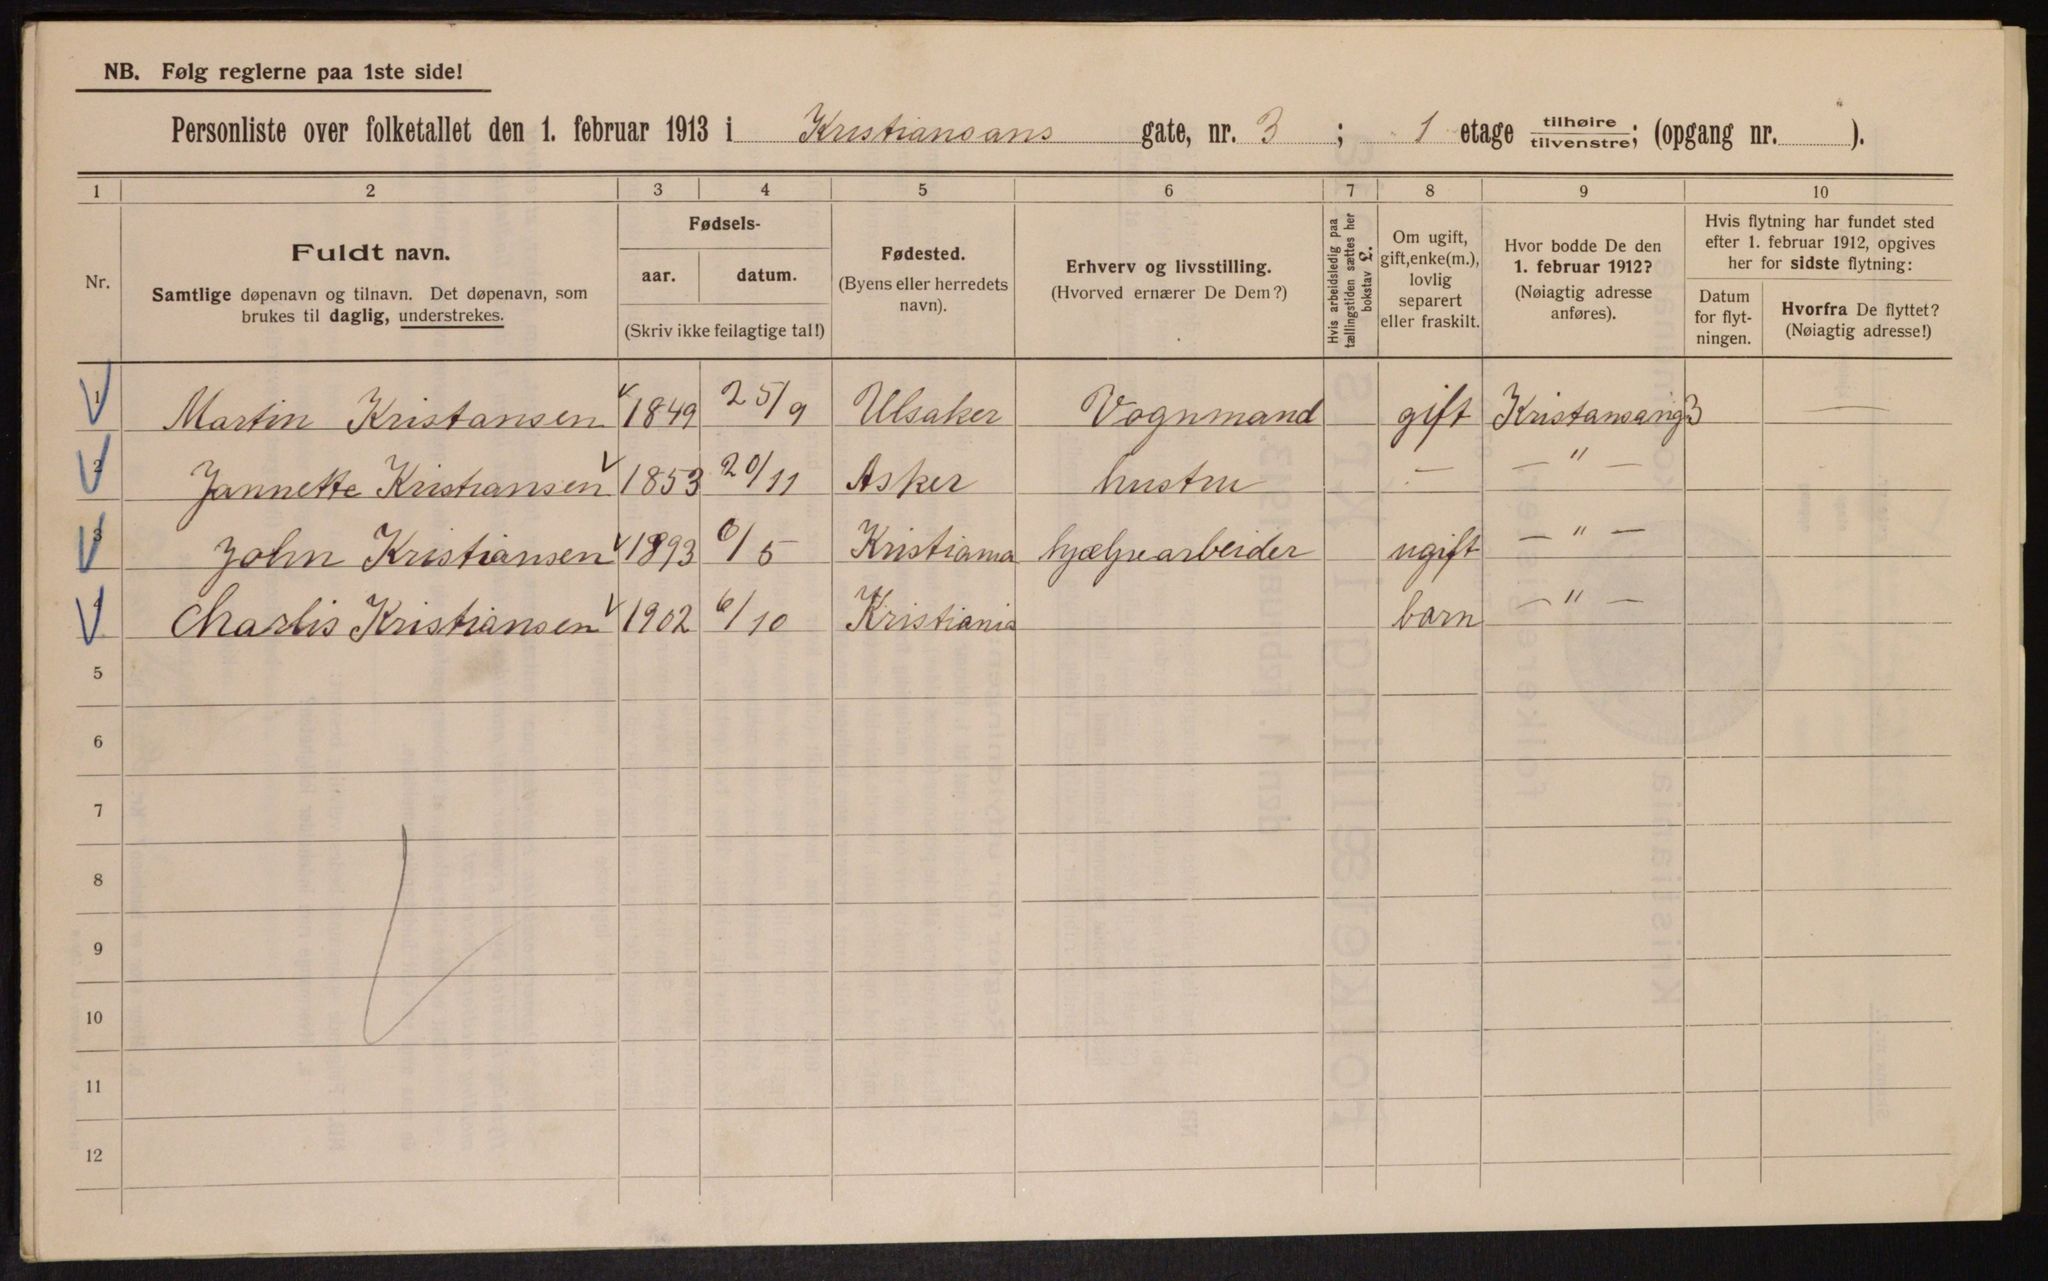 NB. Følg reglerne paa 1ste side!
Personliste over folketallet den 1. februar 1913 i Kristiansans gate, nr. 3 ; 1 etage tilhøire tilvenstre; (opgang nr. ).
1 2 3 4 5 6 7 8 9 10
Nr.
Fuldt navn.
Samtlige døpenavn og tilnavn. Det døpenavn, som
brukes til daglig, understrekes.
Fødsels-
aar. datum.
(Skriv ikke feilagtige tal!)
Fødested.
(Byens eller herredets
navn).
Erhverv og livsstilling.
(Hvorved ernærer De Dem?)
Hvis arbeidsledig paa
tællingstiden sættes her
bokstav L.
Om ugift,
gift, enke(m.),
lovlig
separert
eller fraskilt.
Hvor bodde De den
1. februar 1912?
(Nøiagtig adresse
anføres).
Hvis flytning har fundet sted
efter 1. februar 1912, opgives
her for sidste flytning:
Datum
for flyt-
ningen.
Hvorfra De flyttet?
(Nøiagtig adresse!)
1 Martin Kristansen 1849 25/9 Ulsaker Vognmand gift Kristansang 3 —
2 Jannette Kristiansen 1853 20/11 Asker hustru — — " —
3 John Kristiansen 1893 6/5 Kristiania hjælpearbeider ugift — " —
4 Charlis Kristiansen 1902 6/10 Kristiania barn — " —
5
6
7
8
9
10
11
12